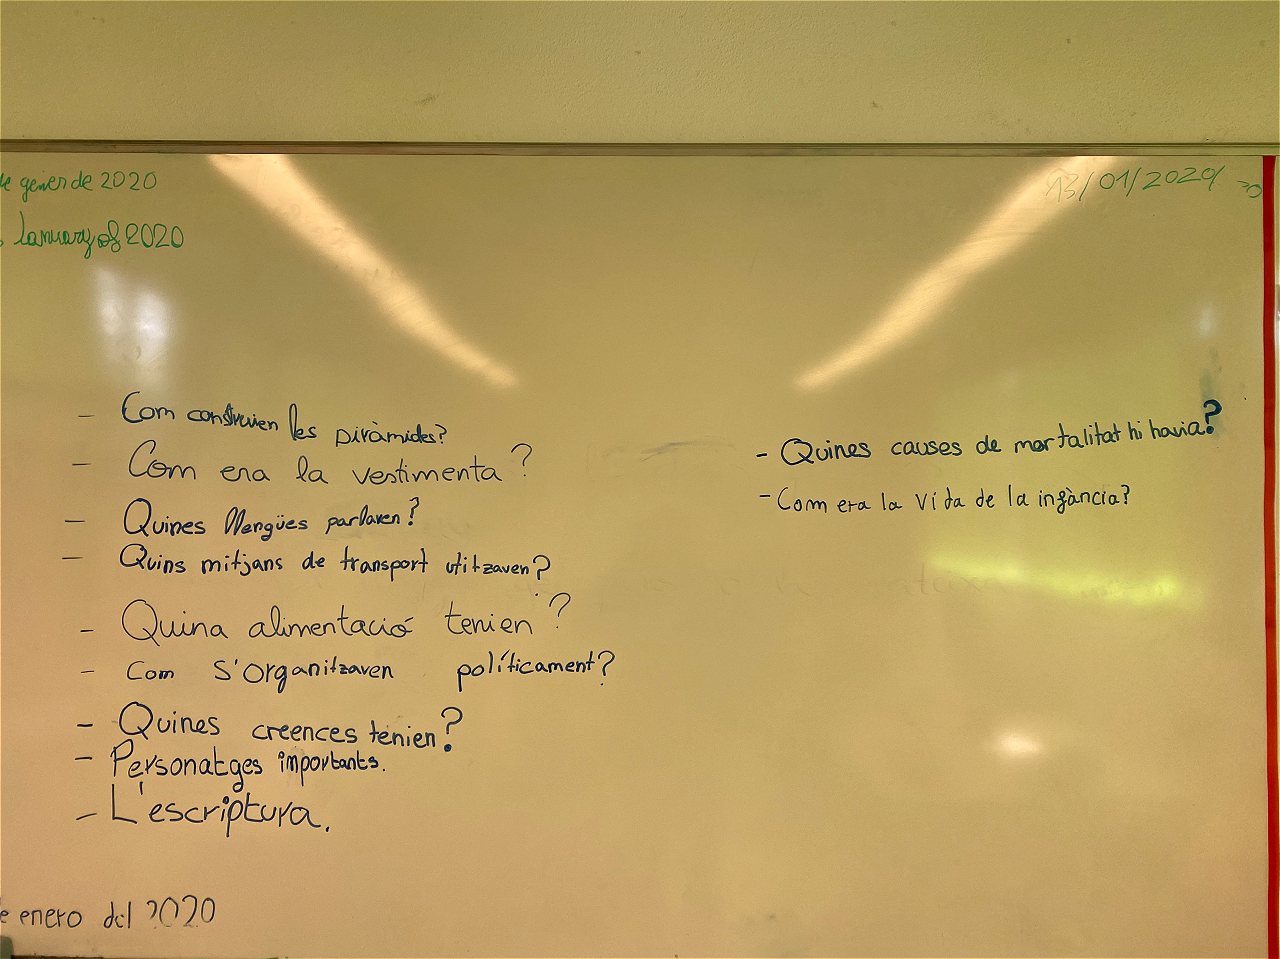 de gener de 2020
January of 2020
13/01/2020
- Com construien les piràmides?
- Com era la vestimenta?
- Quines llengües parlaven?
- Quins mitjans de transport utitzaven?
- Quina alimentació tenien?
- Com s'organitzaven políticament?
- Quines creences tenien?
- Personatges importants.
- L'escriptura.
- Quines causes de mortalitat hi havia?
- Com era la vida de la infància?
de enero del 2020